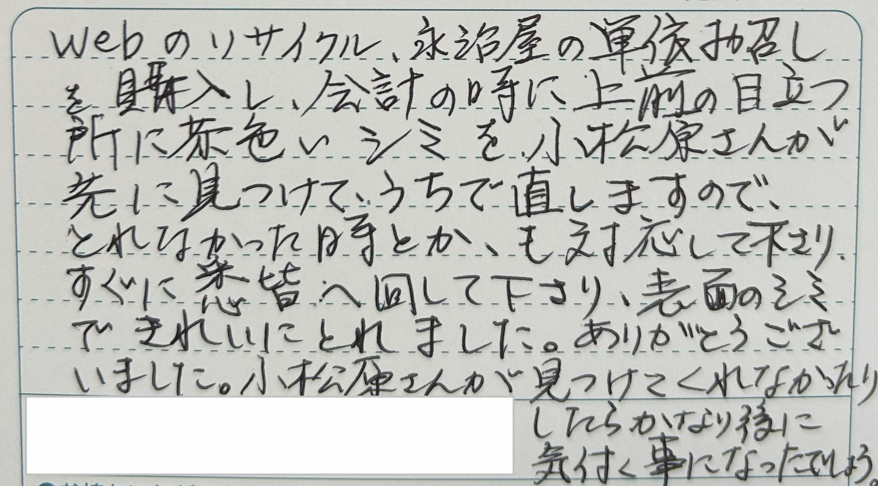 Webのリサイクル、永治屋の単依お召し
を購入し、会計の時に上前の目立つ
所に茶色いシミを小松原さんが
先に見つけて、うちで直しますので、
とれなかった時とか、も対応して下さり、
すぐに悉皆へ回して下さり、表面のシミ
できれいにとれました。ありがとうござ
いました。小松原さんが見つけてくれなかったり
したらかなり後に
気付く事になったでしょう。